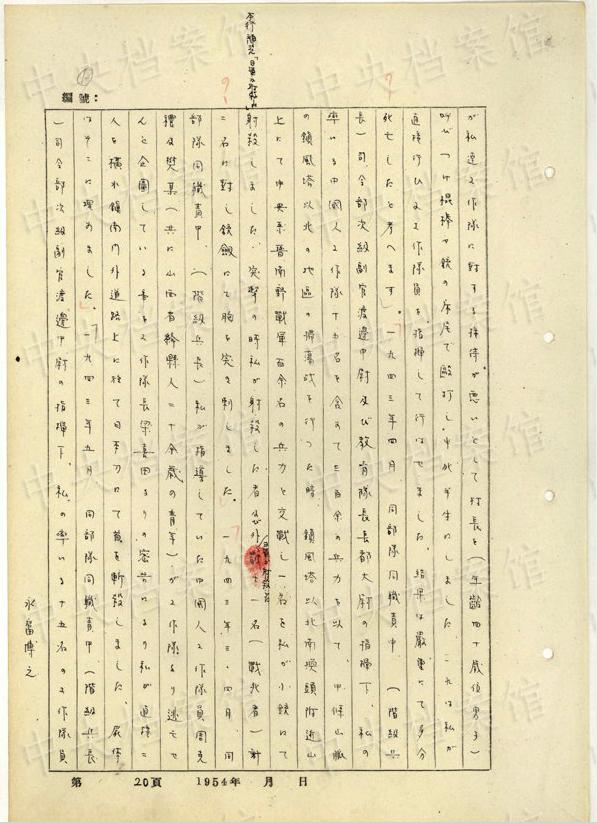 が私達工作隊に対する接待が悪いとして村長を(年齢四十歳位男子)
呼びつけ棍棒や銃の床尾で殴打し、半死半生にしました 之は私が
直接行ひ又工作隊員を指揮して行はせました 結果は厳重にて多分
死亡したと考へます」一九四三年四月 同部隊同職責中 (階級兵
長)司令部次級副官渡邊中尉及び教育隊長 大尉の指揮下、私の
率いる中國人工作隊十五名を含めて三百余の兵力を以て、中條山脈
の鎮風塔以北の地區の掃蕩戦を行つた時 鎮風塔以北南 頭附近山
上にて中央系晋南野戰軍百余名の兵力と交戦し一名を私が小銃にて
射殺しました、突撃の時私が射殺した者以外 一名(戰死者)計
二名に対し銃劍にて胸を突き刺しました。 一九四三年三、四月、同
部隊同職責中、(階級兵長)私が指導していた中國人工作隊員周克
禮及樊某(共に山西省絳縣人二十余歳の青年)が工作隊より逃亡せ
んと企圖している旨を工作隊長梁喜田よりの密告により私が直接二
人を横水鎮南門外道路上に於て日本刀にて首を斬殺しました、屍体
はそこに埋めました。」一九四三年五月 同部隊同職責中(階級兵長
)司令部次級副官渡邊中尉の指揮下、私の率いる十五名の工作隊員
永富博之
編號:
第 20頁 1954年 月 日
中央档案馆